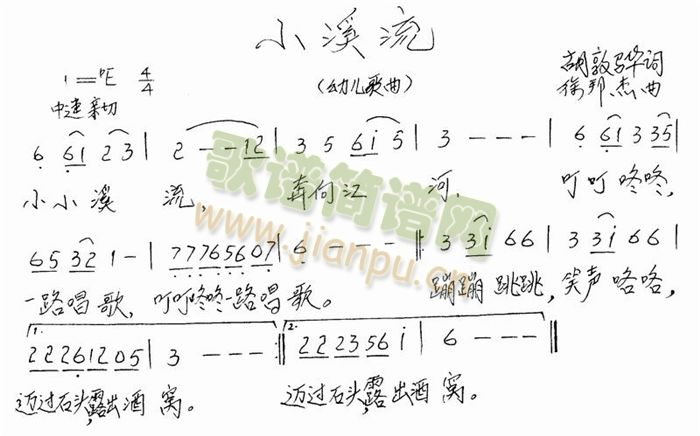 小溪流
(幼儿歌曲)
1=♭E 4/4
胡敦骅词
徐邦杰曲
中速 亲切
6 61 2 3 | 2 - - 12 | 3 5 6i 5 | 3 - - - | 6 61 3 35 |
小小溪 流, 奔向江 河, 叮叮咚咚,
65 32 1 - | 77765607 | 6 - - - || 3 3i 66 | 3 3i 66 |
一路唱歌, 叮叮咚咚一路唱 歌。 蹦蹦跳跳, 笑声咯咯,
1. 22261205 | 3 - - - :|| 2. 222356i | 6 - - - ||
迈过石头,露出酒 窝。 迈过石头,露出酒 窝。
歌谱简谱网
www.jianpu.cn